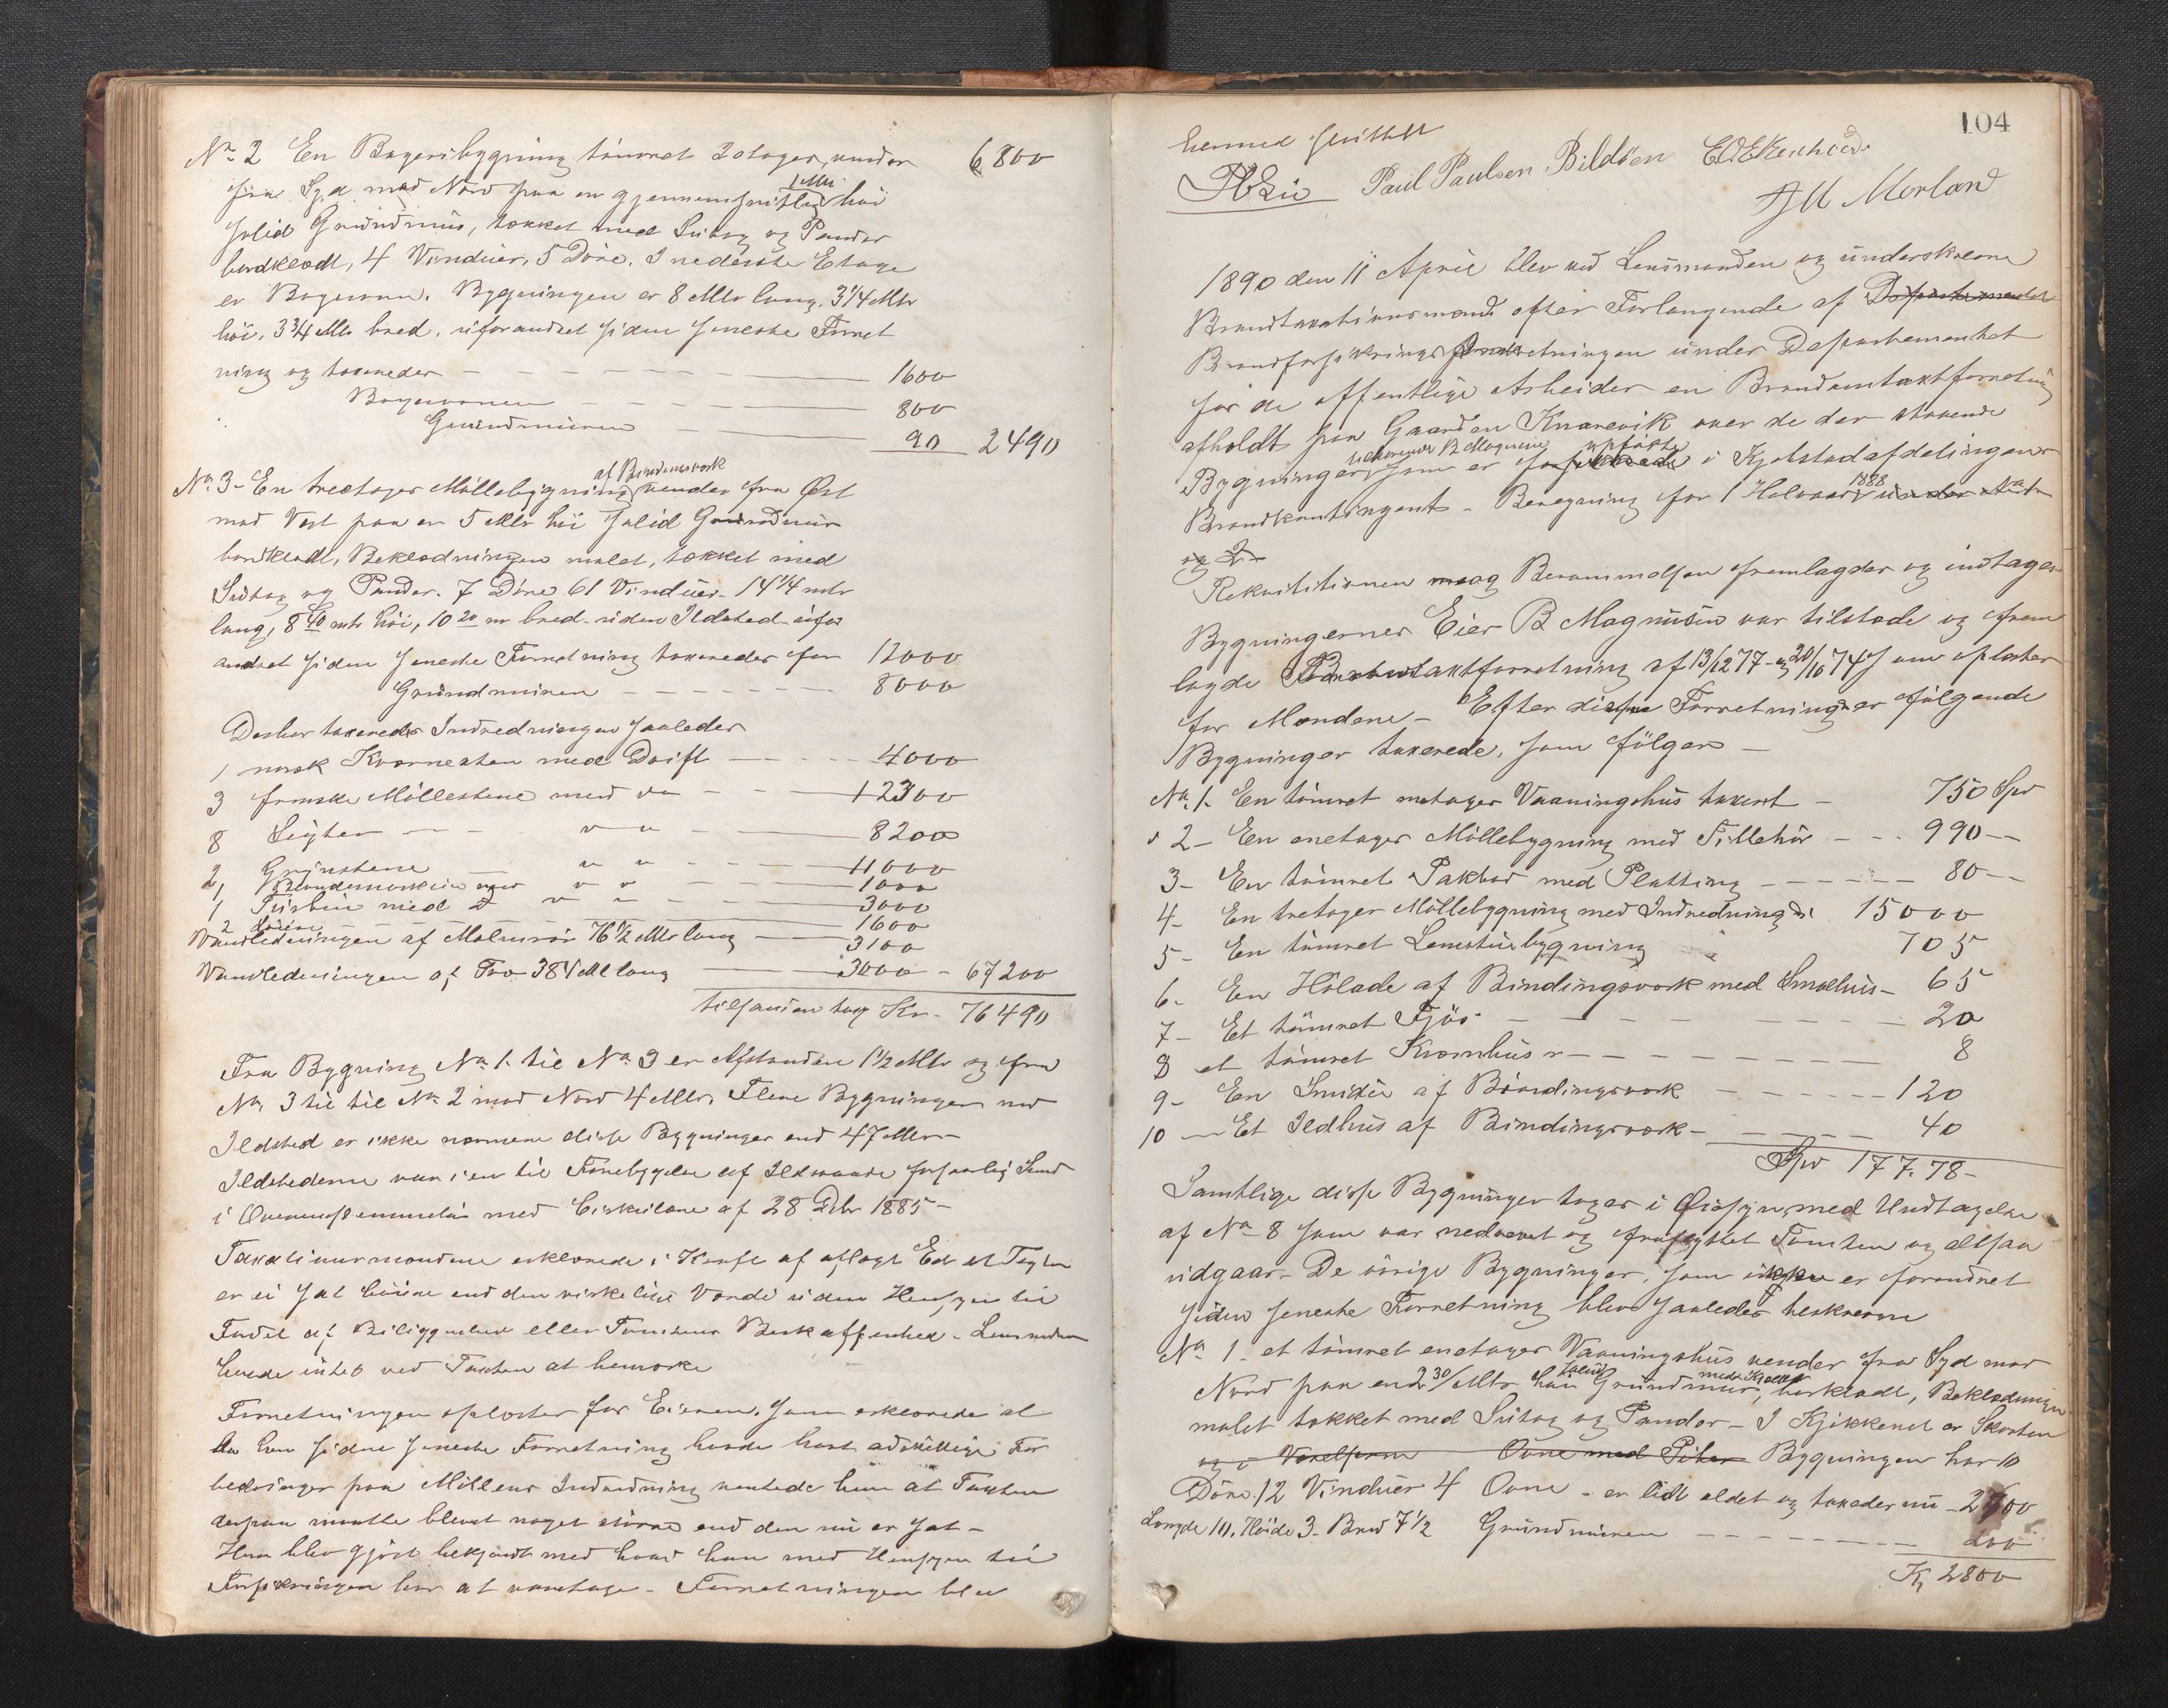 No 2 En Bageribygning tömret 2 etager, vender 6800
fra Syd mod Nord paa en gjennemsnitlig 1 Mtr høi
solid Grundmur, tækket med Sutag og Pander
bordklædt, 4 Vinduer, 5 Döre. I nederste Etage
er Bagerovn. Bygningen er 8 Mtr lang, 3 1/4 Mtr
höi, 3 3/4 Mtr bred, uforandret siden seneste Forret
ning og taxeredes — 1600
Bagerovnen — 800
Grundmuren — 90 2490
No 3 - En treetages Möllebygning af Bindingsverk vender fra Øst
mod Vest paa en 5 Mtr höi solid Grundmur
bordklædt, Beklædningen malet, tækket med
Sutag og Pander. 7 Döre 61 Vinduer - 14 1/4 mtr
lang, 8 40 mtr höi, 10 20 m bred - uden Ildsted - ufor
andret siden seneste Forretning taxeredes for 12000
Grundmuren — 8000
Derhos taxeredes Indredningen saaledes
1 norsk Kværnesten med Drift — 4000
3 franske Möllestene med do — 12300
8 Sigter — " " — 8200
2 Grynstene — " " — 11000
2, 1 " " — 1000
1 Turbin med " " — 3000
2 — 1600
Vandledningen af Malmrör 76 1/2 Mtr lang — 3100
Vandledningen af Træ 384 Mtr lang — 3000 - 67200
tilsammen tax Kr. 76490
Fra Bygning No 1 til No 3 er Afstanden 1 1/2 Mtr og fra
No 3 til til No 2 mod Nord 4 Mtr. Flere Bygninger med
Ildsted er ikke nærmere disse Bygninger end 47 Mtr -
Ildstederne var i en til Forebyggelse af Ildsvaade forsvarlig Stand
i Overensstemmelse med Cirkulære af 28 Febr 1885 -
Taxationsmændene erklærede i Kraft af aflagt Ed at Taxten
er ei sat höiere end den virkelige Værdi uden Hensyn til
Fordel af Beliggenhed eller Tomtens Beskaffenhed - Lensmanden
havde intet ved Taxten at bemærke
Forretningen oplæstes for Eieren, som erklærede at
da han siden seneste Forretning havde havt adskillige For
bedringer paa Möllens Indredning ventede han at Taxten
derpaa maatte blevet noget större end den nu er sat -
Han blev gjort bekjendt med hvad han med Hensyn til
Forsikringen har at varetage - Forretningen blev
104
hermed sluttet
Paul Paulsen Bildöen
Morland
1890 den 11 April blev ved Lensmanden og underskrevne
Brandtaxationsmænd efter Forlangende af Departementet
Brandforsikringsindretningen under Departementet
for de offentlige Arbeider en Brandomtaxtforretning
afholdt paa Gaarden Knarevik over de der staaende
Bygninger, tilhørende B Magnusen som er opförte i Kjøbstadafdelingens
Brandkontingent - Beregning for 1 Halvaar 1888 under No 1
og 2
Rekvisitionen og Berammelsen fremlagdes og indtages
Bygningernes Eier B Magnusen var tilstede og frem
lagde Brandtaxtforretning af 13/12 77 - og 20/10 74 som oplæstes
for Mændene - Efter disse Forretninger er følgende
Bygninger taxerede, som fölger -
No 1. En tömret etages Vaaningshus taxeret — 750 Spd
" 2 - En enetages Möllebygning med Tilbehör — 990 —
3 - En tömret Pakbod med Platting — 80 —
4 - En tretages Möllebygning med Indredning 15000
5 - En tömret bygning 705
6 - En Hölade af Bindingsværk med Smalhus - 65
7 - Et tömret Fjös — 20
8 et tömret Kvernhus — 8
9 - En Smidie af Bindingsværk — 120
10 - Et Ildhus af Bindingsværk — 40
Spd 177.78 -
Samtlige disse Bygninger toges i Øiesyn, med Undtagelse
af No 8 som var nedrevet og fraflyttet Tomten og altsaa
udgaar - De övrige Bygninger, som ikke er forandret
siden seneste Forretning blev saaledes beskrevne
No 1 - et tömret enetages Vaaningshus vender fra Syd mod
Nord paa en 2 30/ Mtr höi solid Grundmur, med Kjelder, bordklædt, Beklædningen
malet tækket med Sutag og Pander - I Kjökkenet er Skorsten
og i Værelserne Ovne med Piber Bygningen har 10
Döre. 12 Vinduer 4 Ovne - er lidt ældet og taxeres nu - 2600
Længde 10, Höide 3 - Bred 7 1/2 Grundmuren — 200
Kr 2800